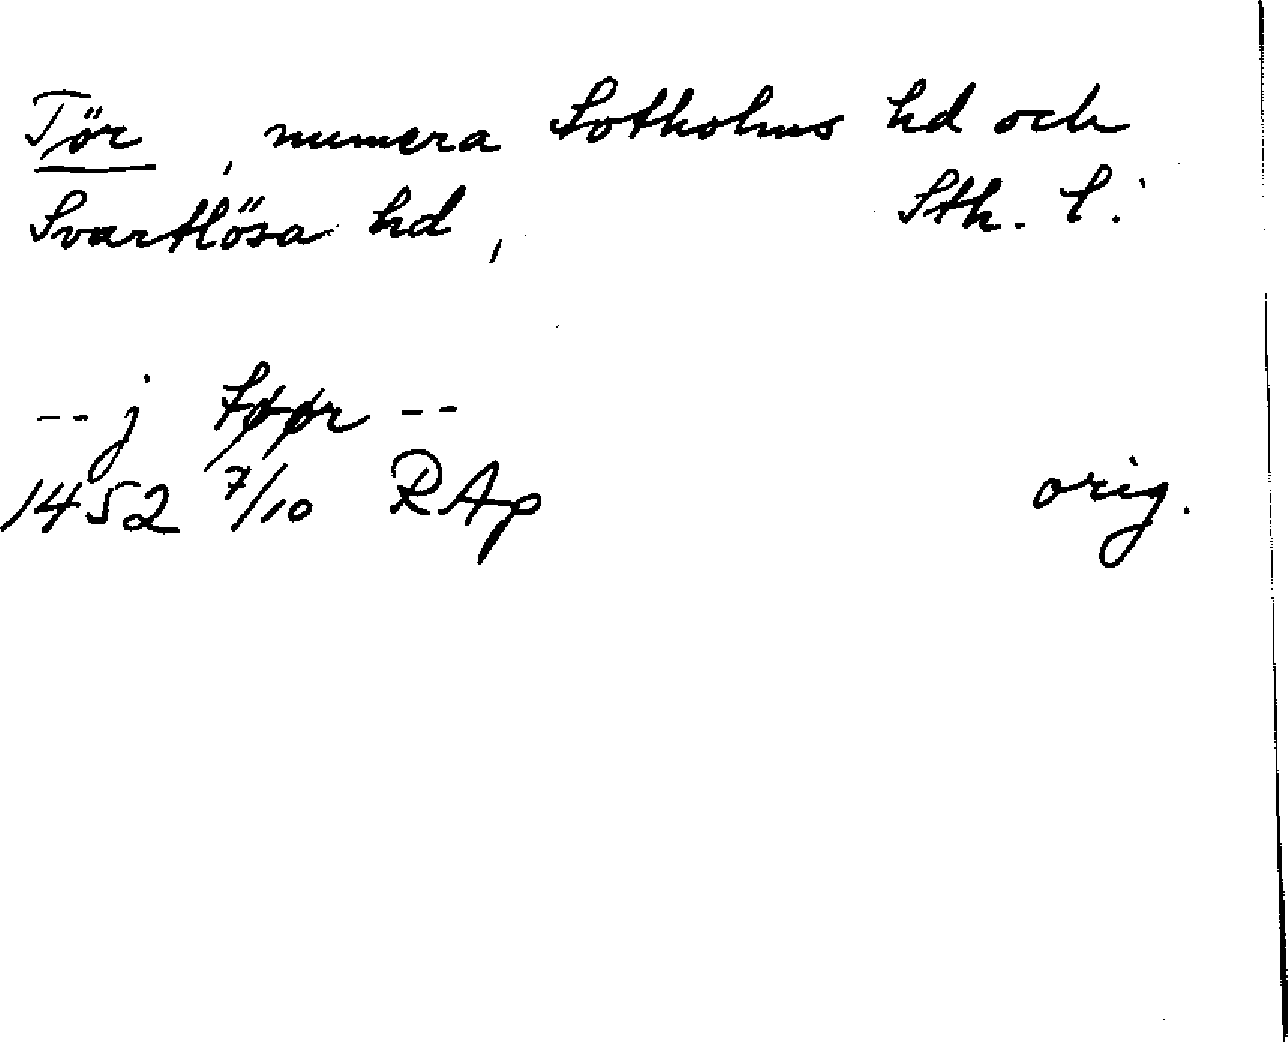 Tör, numera Sotholms hd och
Svartlösa hd, Sth. l.
-- j tøør --
1452 7/10 RAp orig.